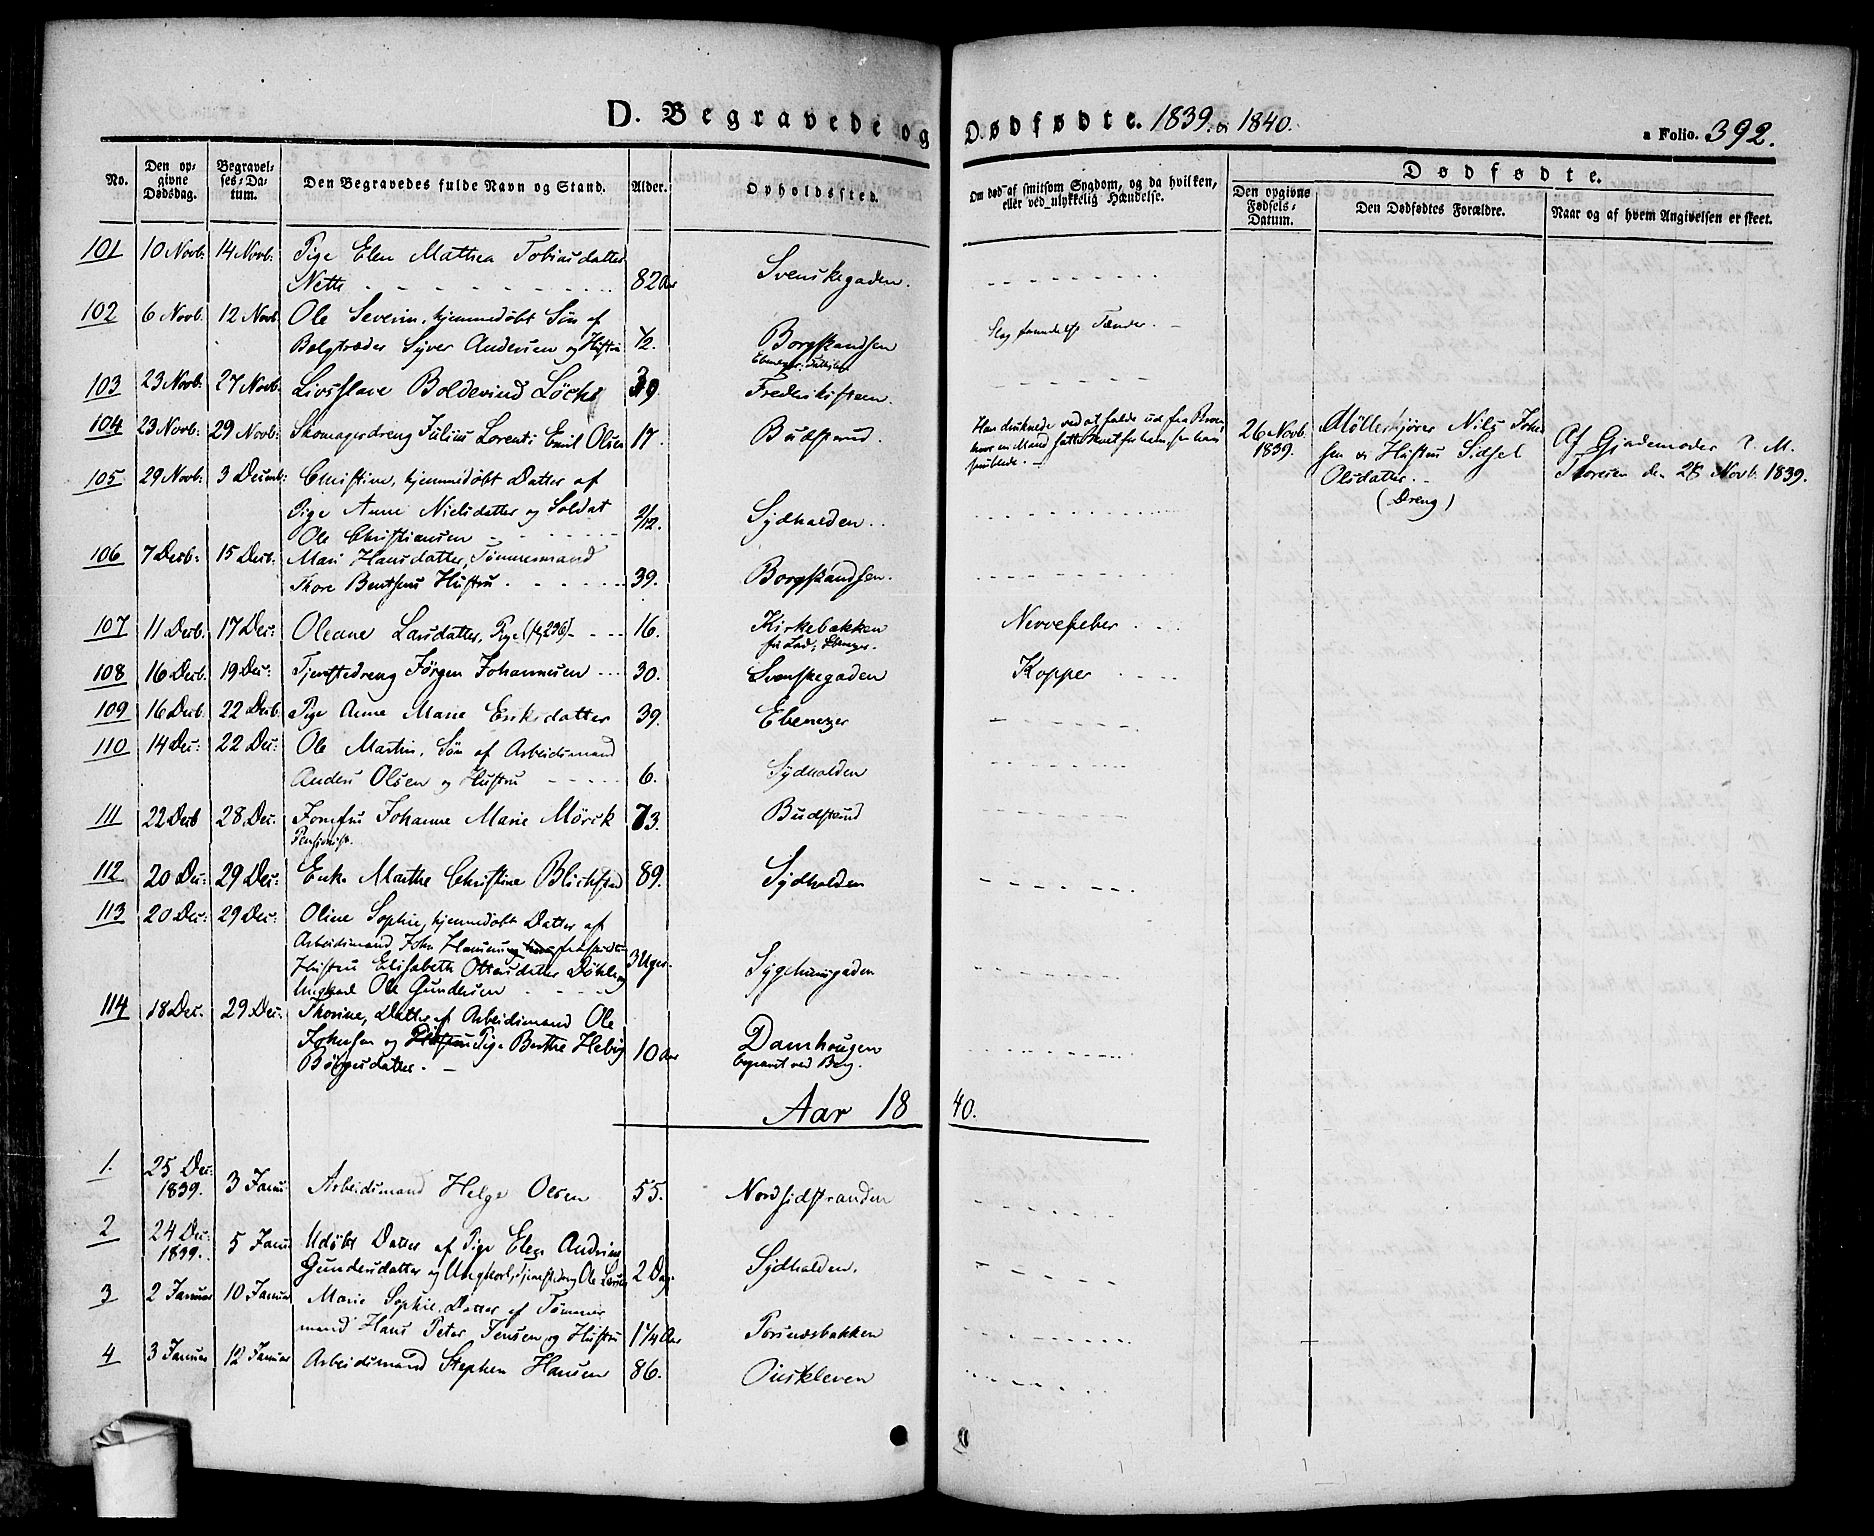 D. Begravede og Dødfødte. 1839. & 1840.
a Folio. 392.
No.
Den opgivne Dødsdag.
Begravelses-Datum.
Den Begravedes fulde Navn og Stand.
Alder.
Opholdssted.
Om død af smitsom Sygdom, og da hvilken, eller ved ulykkelig Hændelse.
Dødfødte.
Den opgivne Fødsels-Datum.
Den Dødfødtes Forældre.
Naar og af hvem Angivelsen er skeet.
101 10 Novb. 14 Novb. Pige Elen Mathea Tobiasdatter
Nette 82 Aar Svenskegaden.
102 6 Novb. 12 Novb. Ole Severin, hjemmedøbt Søn af
Bælgtræder Syver Andersen og Hustru ½. Borgskandsen
Slag Tænder.
103 23 Novb. 27 Novb. Livsslave Boldevind 39. Frederiksteen.
104 23 Novb. 29 Novb. Skomagerdreng Julius Lorents Emil Olsen 17. Budstrud.
Han druknede ved at falde ud fra Broen
hvor en Mand
26 Novb. 1839. Møllerkjører Nils Johnsen & Hustru Sidsel
Olsdatter.
(Dreng)
Af Gjordemoder M.
Thoresen den 28 Novb. 1839.
105 29 Novb. 3 Decemb: Christine, hjemmedøbt Datter af
Pige Anne Nielsdatter og Soldat 2/12. Sydhalden.
Ole Christiansen
106 7 Decb: 15 Decb. Mari Hansdatter, Tømmermand
Thore Bentsens Hustru 39. Borgskandsen.
107 11 Decb. 17 Dec: Oleane Larsdatter, Pige 16. Kirkebakken
Nervefeber
108 16 Decb. 19 Dec: Tjenstedreng Jørgen Johannesen 30. Svenskegaden
Kopper
109 16 Decb. 22 Decb. Pige Anne Marie Eriksdatter 39. Ebenezer
110 14 Dec: 22 Dec: Ole Martin, Søn af Arbeidsmand
Anders Olsen og Hustru 6. Sydhalden
111 22 Decb 28 Dec: Jomfru Johanne Marie Mørck 73. Budstrud
Pensionist.
112 20 Dec: 29 Dec: Enke Marthe Christine Blichfeld 89. Sydhalden
113 20 Dec: 29 Dec: Oline Sophie, hjemmedøbt Datter af
Arbeidsmand John Hansens fraskildte
Hustru Elisabeth Olsesdatter 3 Uger.
Ungkarl Ole Gundersen
114 18 Dec. 29 Dec: Thorine, Datter af Arbeidsmand Ole
Johnsen og Pige Berthe Helvig 10 Aar Damhougen
Børgesdatter. begravet ved Berg.
Aar 1840.
1. 25 Dec: 1839. 3 Janu Arbeidsmand Helge Olsen 55. Nordsidstranden
2 24 Dec: 1839. 5 Janu Udøbt Datter af Pige Elen Andrine
Gundersdatter og Ungkarl, Tjenstedreng Ole Larsen 2 Dage Sydhalden.
3 2 Januar 10 Januar Marie Sophie, Datter af Tømmer
mand Hans Peter Jensen og Hustru 1¼ Aar Torsnæsbakken
4 3 Januar 12 Januar Arbeidsmand Stephen Hansen 86. Ouskleven